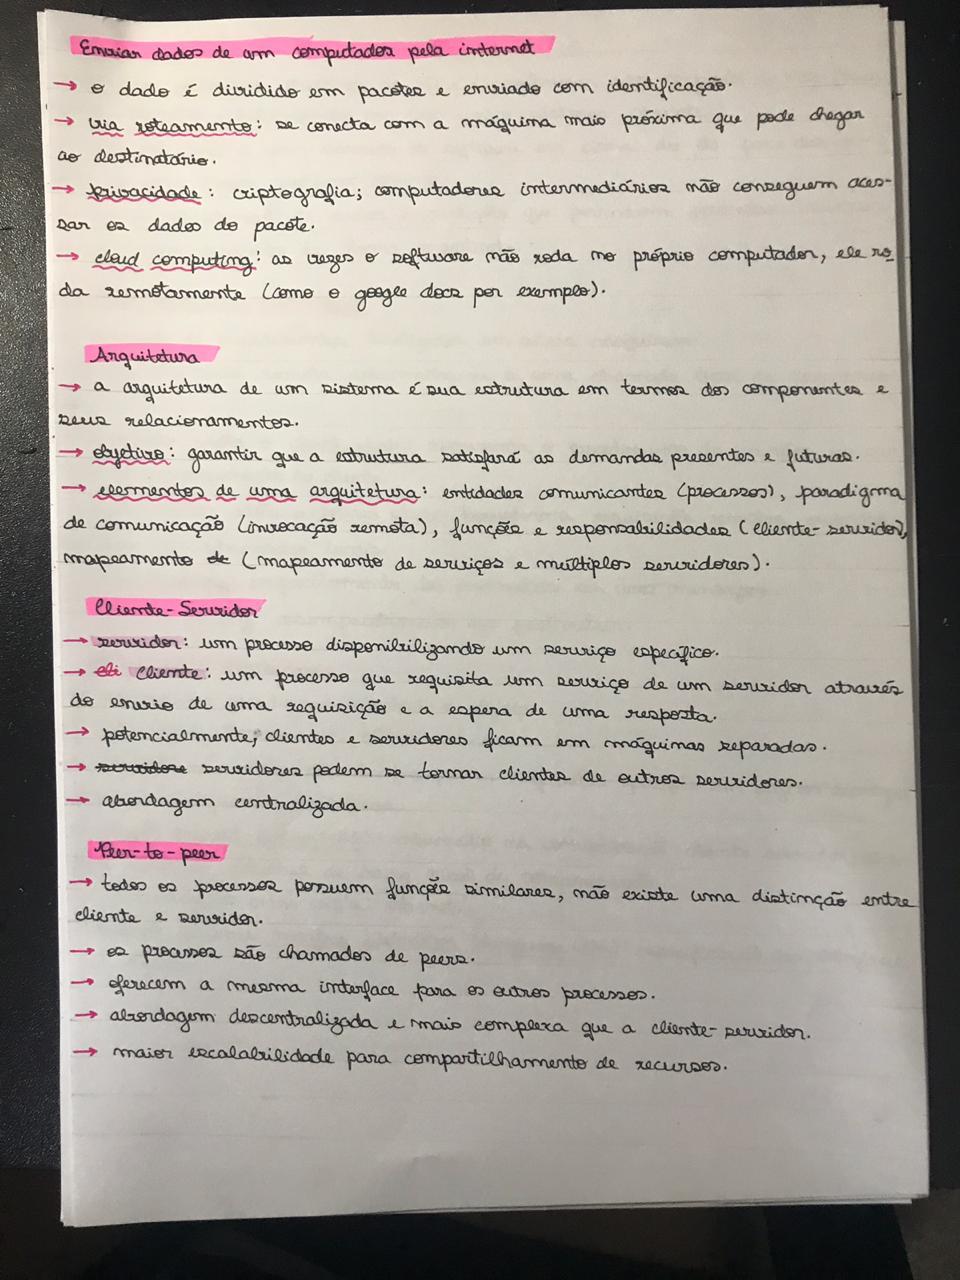 Enviar dados de um computador pela internet
→ o dado é dividido em pacotes e enviado com identificação.
→ via roteamento: se conecta com a máquina mais próxima que pode chegar
ao destinatário.
→ privacidade: criptografia; computadores intermediários não conseguem aces-
sar os dados do pacote.
→ cloud computing: as vezes o software não roda no próprio computador, ele ro
da remotamente (como o google docs por exemplo).
Arquitetura
→ a arquitetura de um sistema é sua estrutura em termos dos componentes e
seus relacionamentos.
→ objetivo: garantir que a estrutura satisfará as demandas presentes e futuras.
→ elementos de uma arquitetura: entidades comunicantes (processos), paradigma
de comunicação (invocação remota), funções e responsabilidades (cliente-servidor),
mapeamento de (mapeamento de serviços e múltiplos servidores).
Cliente-Servidor
→ servidor: um processo disponibilizando um serviço específico.
→ cli cliente: um processo que requisita um serviço de um servidor através
do envio de uma requisição e a espera de uma resposta.
→ potencialmente, clientes e servidores ficam em máquinas separadas.
→ servidore servidores podem se tornar clientes de outros servidores.
→ abordagem centralizada.
Peer-to-peer
→ todos os processos possuem funções similares, não existe uma distinção entre
cliente e servidor.
→ os processos são chamados de peers.
→ oferecem a mesma interface para os outros processos.
→ abordagem descentralizada e mais complexa que a cliente-servidor.
→ maior escalabilidade para compartilhamento de recursos.